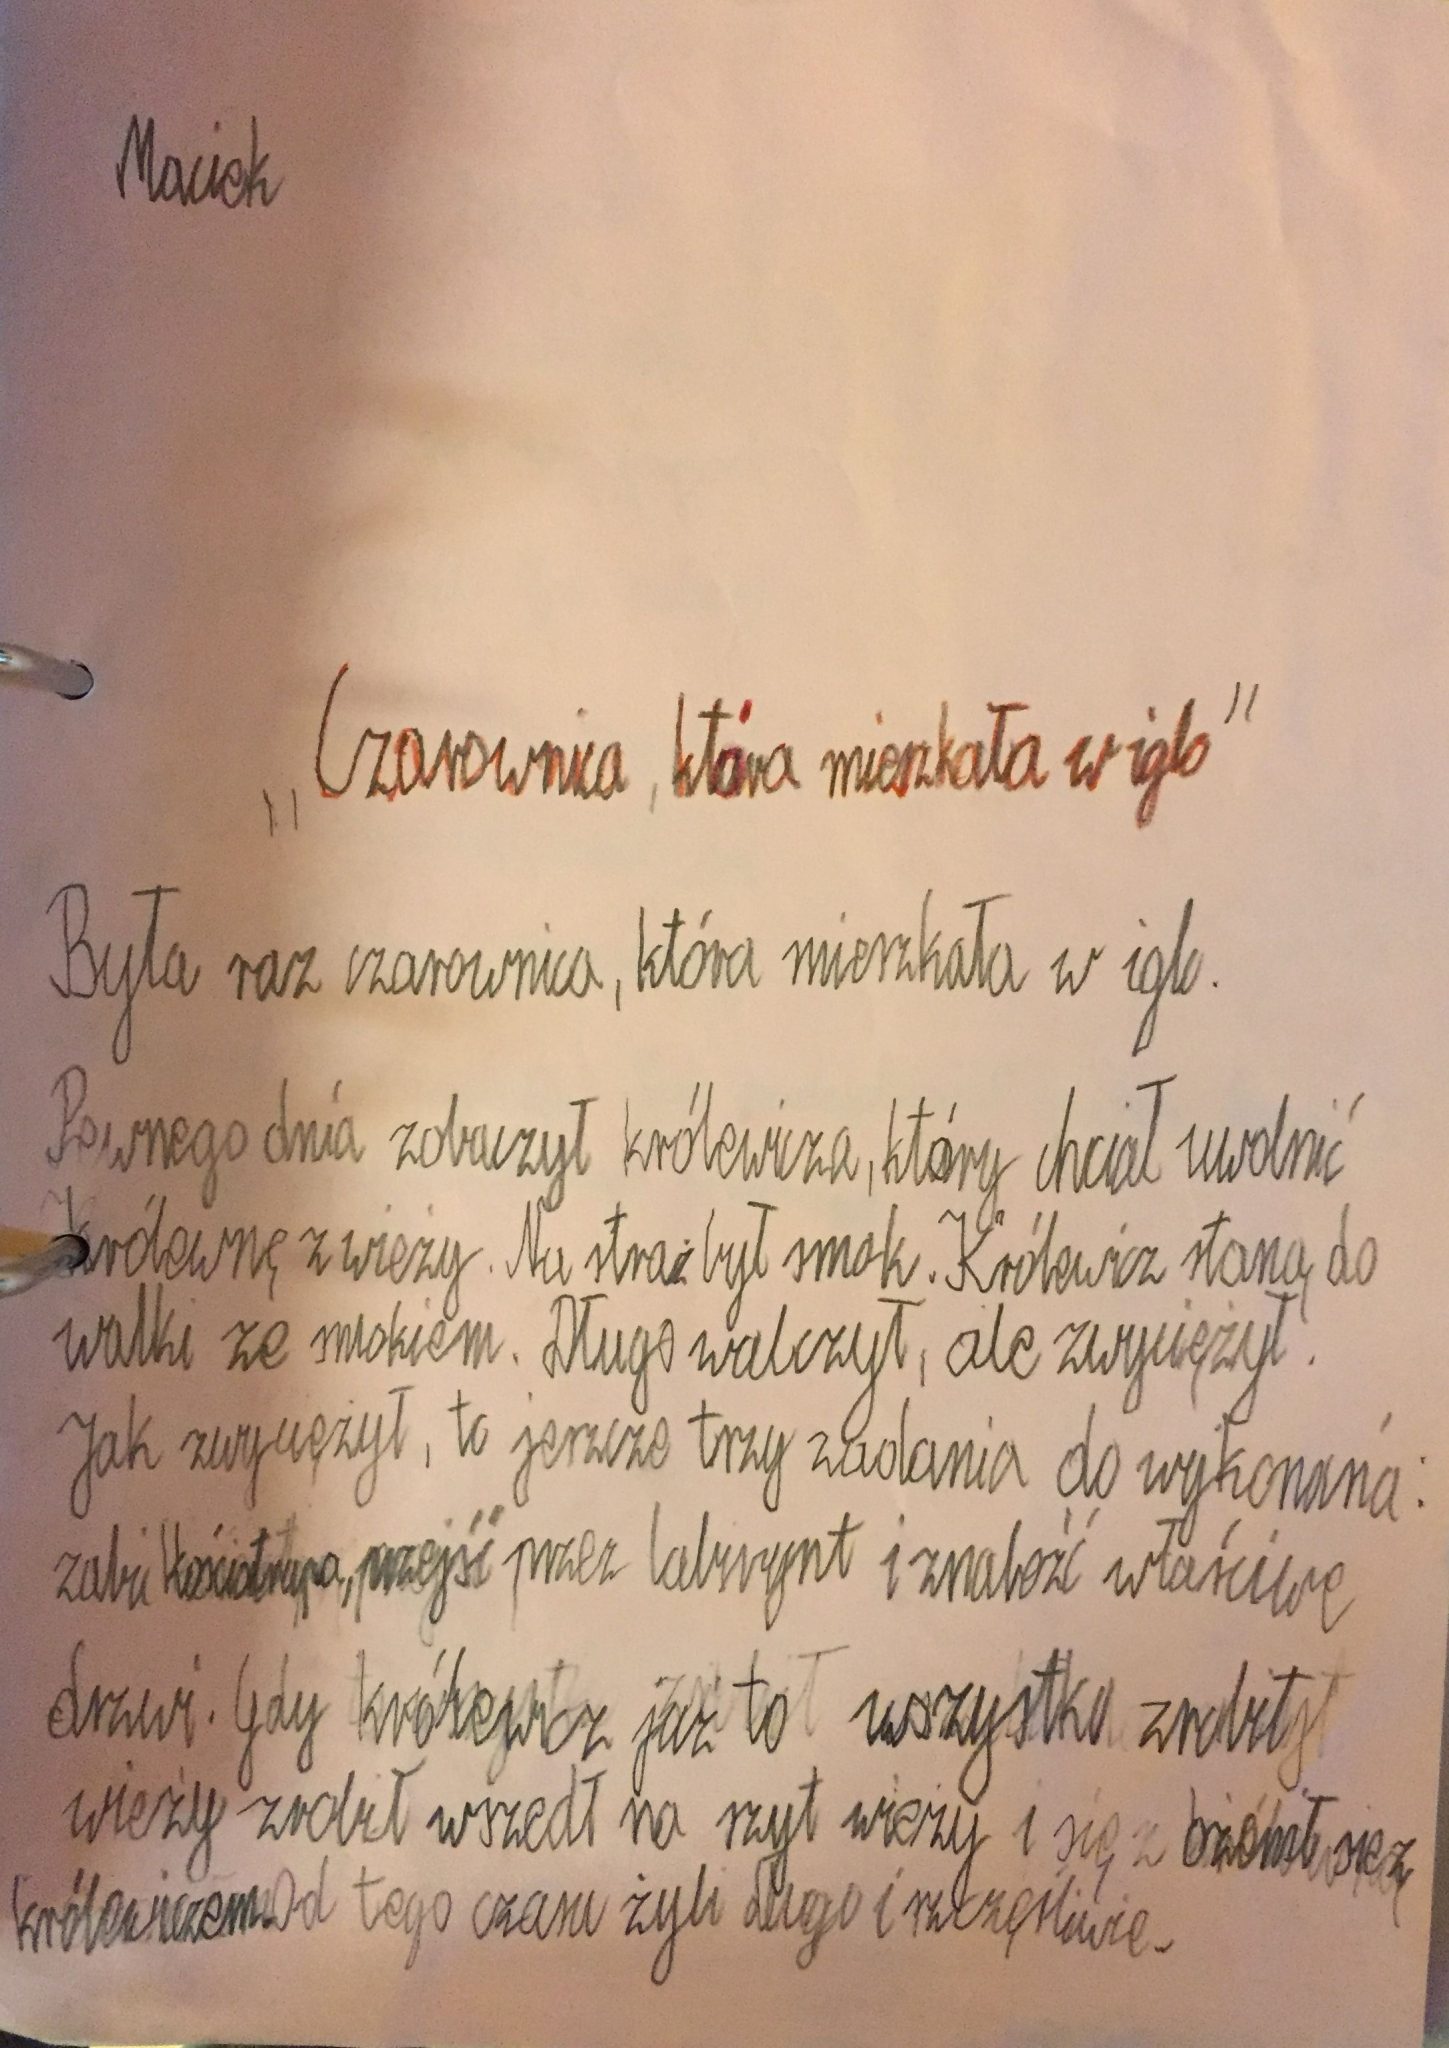 Maciek
„Czarownica, która mieszkała w iglo"
Była raz czarownica, która mieszkała w iglo.
Pewnego dnia zobaczył królewicza, który chciał uwolnić
królewnę z wieży. Na straż był smok. Królewicz staną do
walki ze smokiem. Długo walczył, ale zwyciężył.
Jak zwyciężył, to jeszcze trzy zadania do wykonana:
zabi kościotrupa, przejść przez labirynt i znaleźć właściwę
drzwi. Gdy królewicz już to wszystko zrobił
wieży zrobił wszedł na szyt wieży i się z ożenił się z
królewiczem. Od tego czasu żyli długo i szczęśliwie.